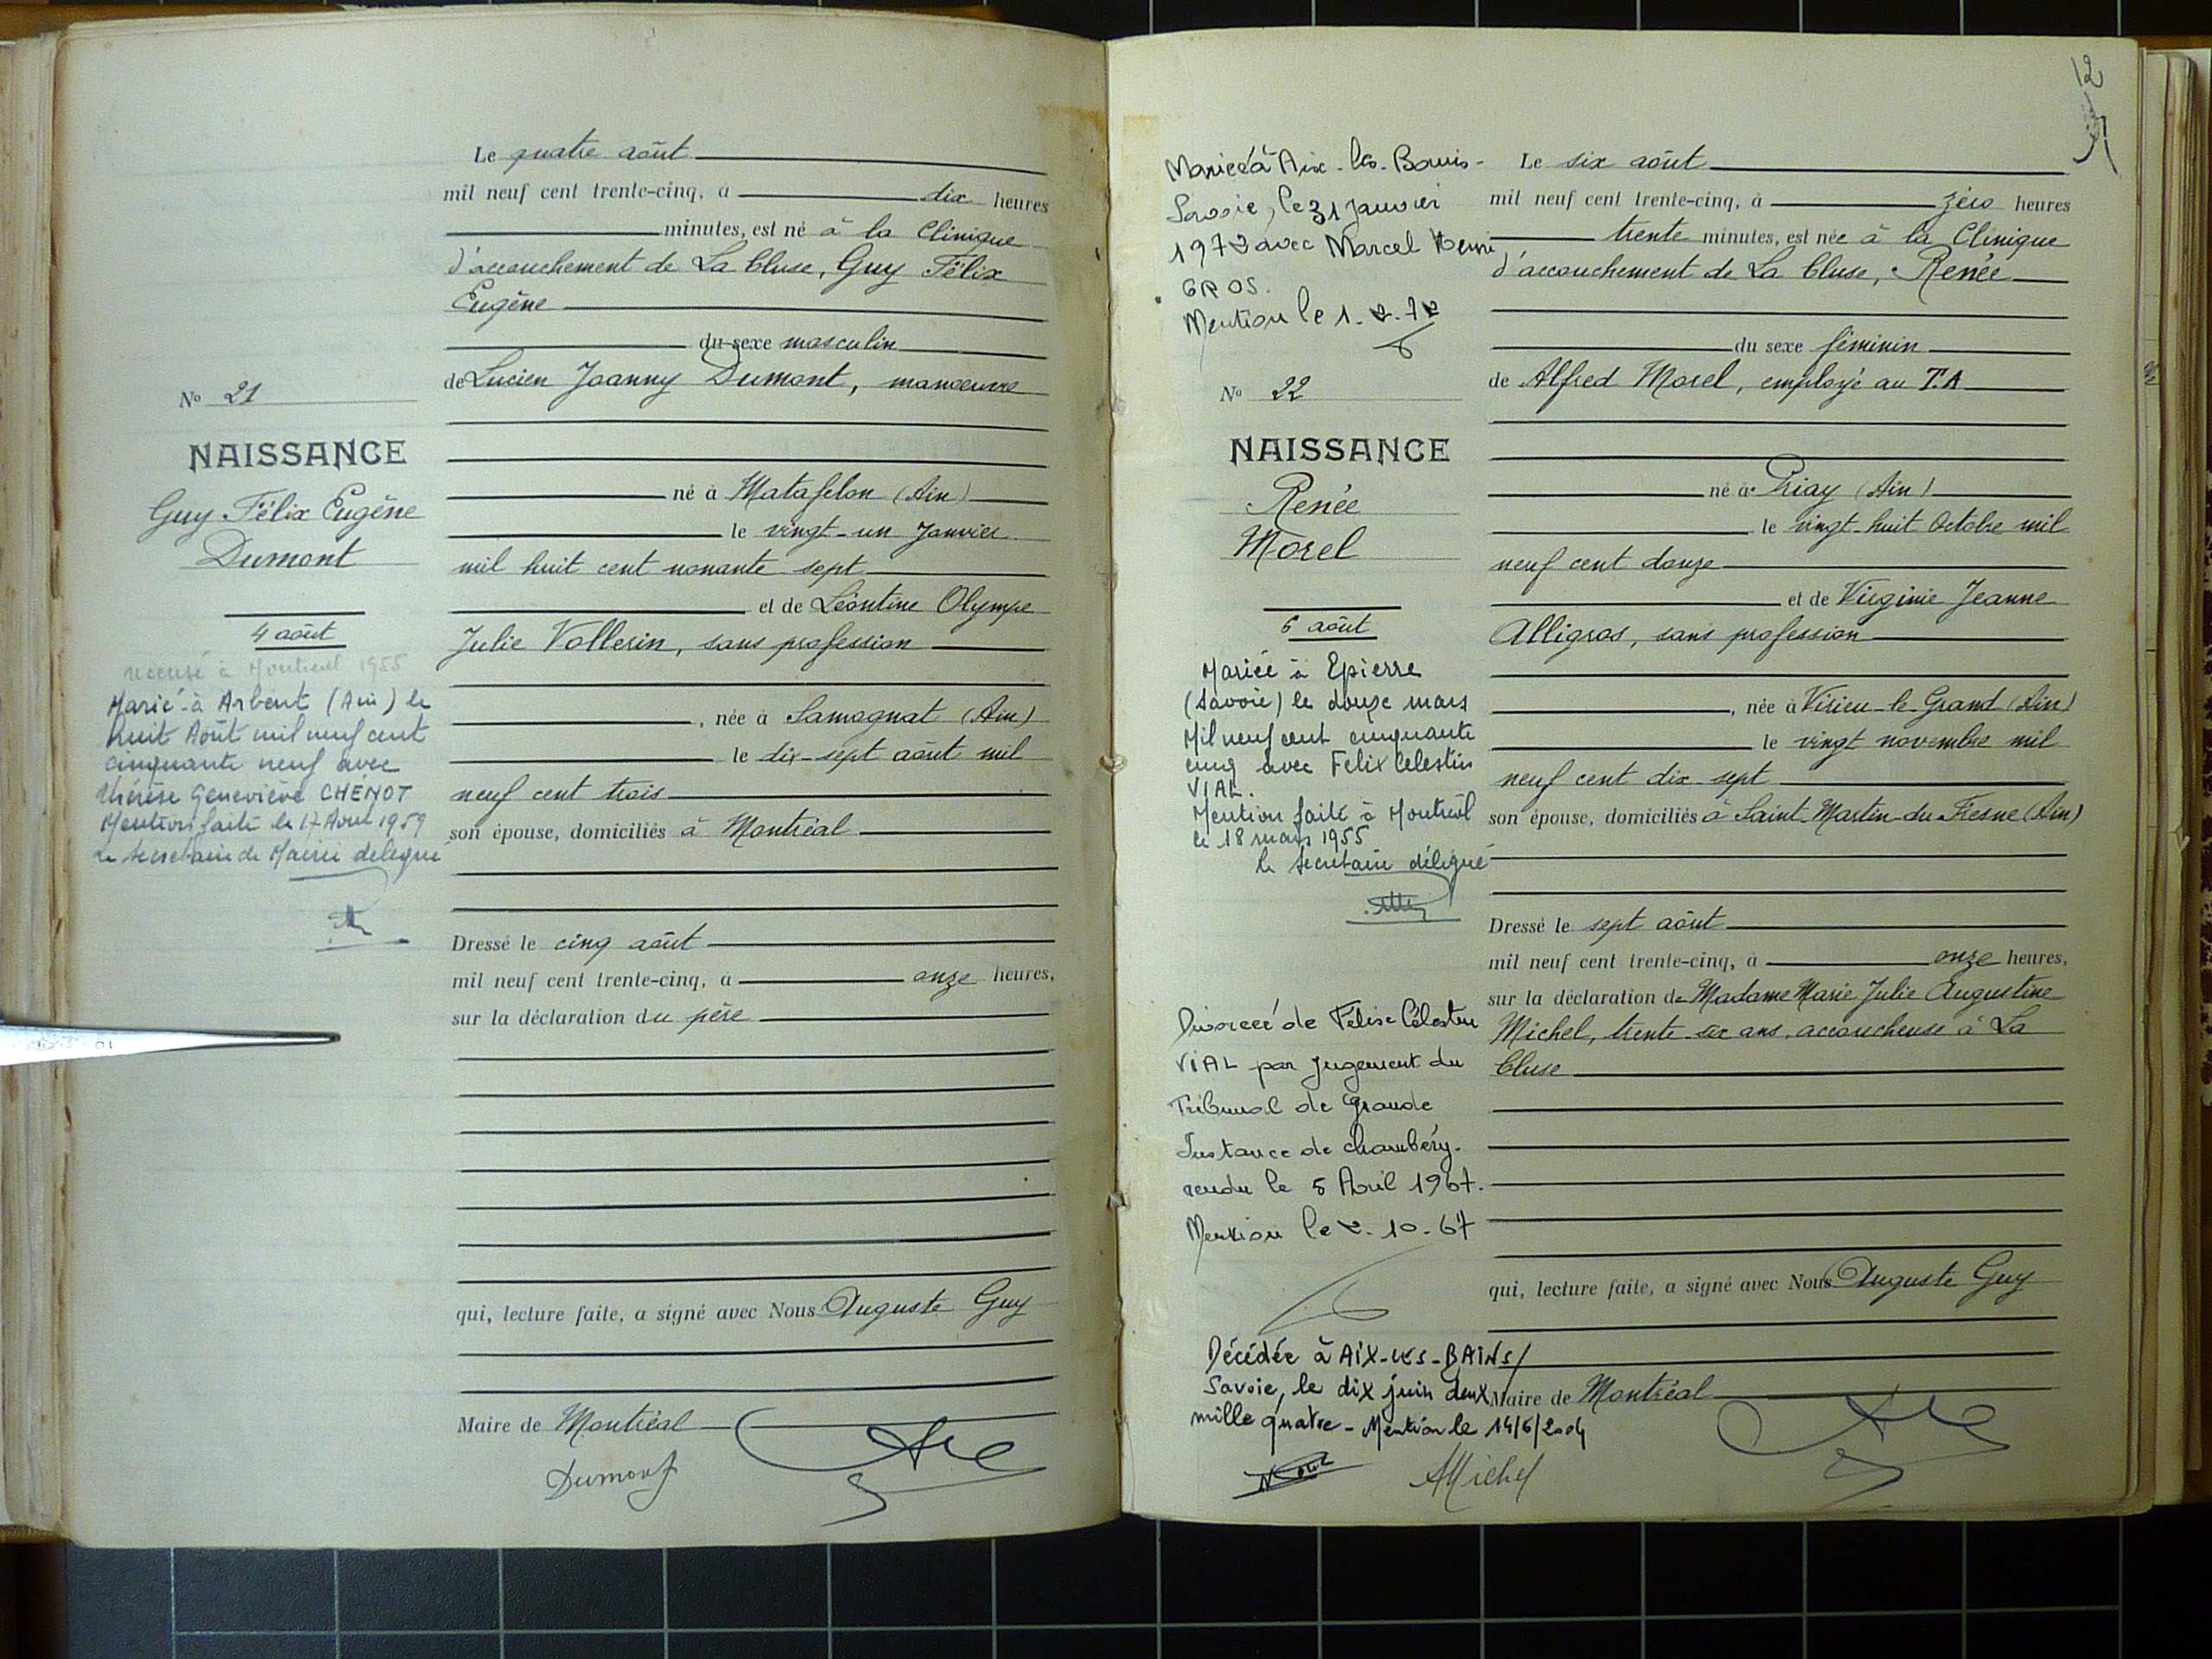 Le quatre août
mil neuf cent trente-cinq, à dix heures
minutes, est né à la Clinique
d'accouchement de La Cluse, Guy Félix
Eugène
du sexe masculin
de Lucien Joanny Dumont, manoeuvre
né à Matafelon (Ain)
le vingt-un Janvier
mil huit cent nonante sept
et de Léontine Olympe
Julie Vollerin, sans profession
, née à Samognat (Ain)
le dix-sept août mil
neuf cent trois
son épouse, domiciliés à Montréal
Dressé le cinq août
mil neuf cent trente-cinq, à onze heures,
sur la déclaration du père
qui, lecture faite, a signé avec Nous Auguste Guy
Maire de Montréal
Dumont
No 21
NAISSANCE
Guy Félix Eugène
Dumont
4 août
recensé à Montréal 1955
Marié à Arbent (Ain) le
huit Août mil neuf cent
cinquante neuf avec
Thérèse Geneviève CHENOT
Mention faite le 17 Août 1959
Le secrétaire de Mairie délégué
Mariée à Aix-les-Bains-
Savoie, le 31 Janvier
1972 avec Marcel Henri
GROS.
Mention le 1.2.72
No 22
NAISSANCE
Renée
Morel
6 août
Mariée à Epierre
(Savoie) le douze mars
Mil neuf cent cinquante
cinq avec Felix Celestin
VIAL.
Mention faite à Montréal
le 18 mars 1955
le secrétaire délégué
Divorcée de Félix Célestin
VIAL par Jugement du
Tribunal de Grande
Instance de Chambéry.
rendu le 5 Avril 1967.
Mention le 2.10.67
Décédée à AIX-LES-BAINS/
Savoie, le dix juin deux
mille quatre - Mention le 14/6/2004
Le six août
mil neuf cent trente-cinq, à zéro heures
trente minutes, est née à la Clinique
d'accouchement de La Cluse, Renée
du sexe féminin
de Alfred Morel, employé au T.A
né à Priay (Ain)
le vingt-huit Octobre mil
neuf cent douze
et de Virginie Jeanne
Alligros, sans profession
, née à Virieu-le-Grand (Ain)
le vingt novembre mil
neuf cent dix-sept
son épouse, domiciliés à Saint-Martin-du-Fresne (Ain)
Dressé le sept août
mil neuf cent trente-cinq, à onze heures,
sur la déclaration de Madame Marie Julie Augustine
Michel, trente-six ans, accoucheuse à La
Cluse
qui, lecture faite, a signé avec Nous Auguste Guy
Maire de Montréal
AMichel